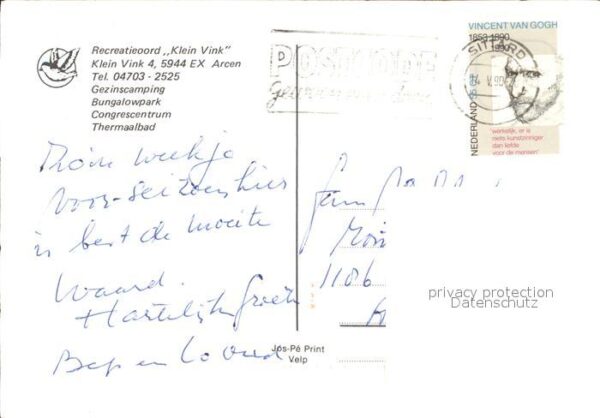 Recreatieoord ,,Klein Vink"
Klein Vink 4, 5944 EX Arcen
Tel. 04703 - 2525
Gezinscamping
Bungalowpark
Congrescentrum
Thermaalbad
POSTCODE
VINCENT VAN GOGH
1853-1890
1990
SITTARD
V.90
NEDERLAND 55
"werkelijk, er is
niets kunstzinniger
dan liefde
voor de mensen"
weekje
voor-seizoen hier
is best de moeite
waard.
Hartelijk groeten
Bep en
Fam.
1186
privacy protection
Datenschutz
Jos-Pé Print
Velp